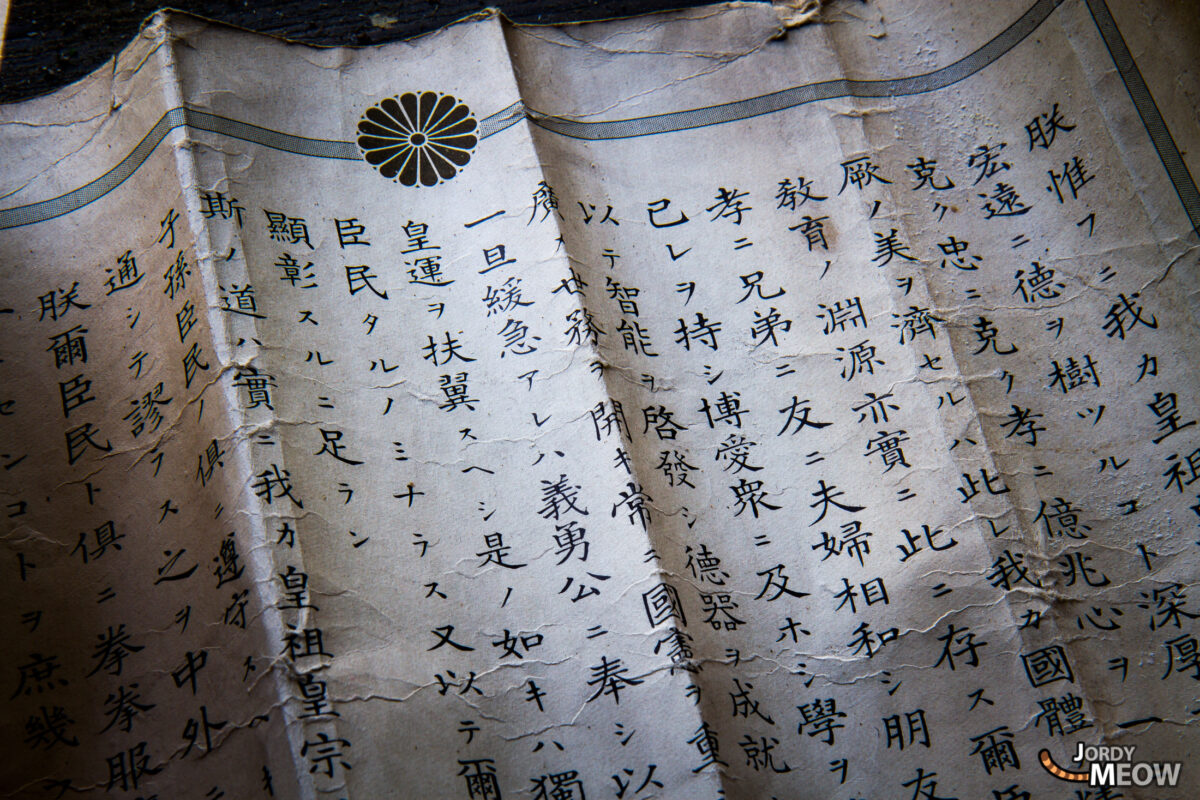 朕惟フニ我カ皇祖
宏遠ニ德ヲ樹ツルコト深厚
克ク忠ニ克ク孝ニ億兆心ヲ一
厥ノ美ヲ濟セルハ此レ我カ國體
教育ノ淵源亦實ニ此ニ存ス爾
孝ニ兄弟ニ友ニ夫婦相和シ朋友
己レヲ持シ博愛衆ニ及ホシ學ヲ
以テ智能ヲ啓發シ德器ヲ成就
廣メ世務ヲ開キ常ニ國憲ヲ重
一旦緩急アレハ義勇公ニ奉シ以
皇運ヲ扶翼スヘシ是ノ如キハ獨
臣民タルノミナラス又以テ爾
顯彰スルニ足ラン
斯ノ道ハ實ニ我カ皇祖皇宗
子孫臣民ノ俱ニ遵守スヘキ
通シテ謬ラス之ヲ中外
朕爾臣民ト俱ニ拳拳服
センコトヲ庶幾ス
JORDY
MEOW